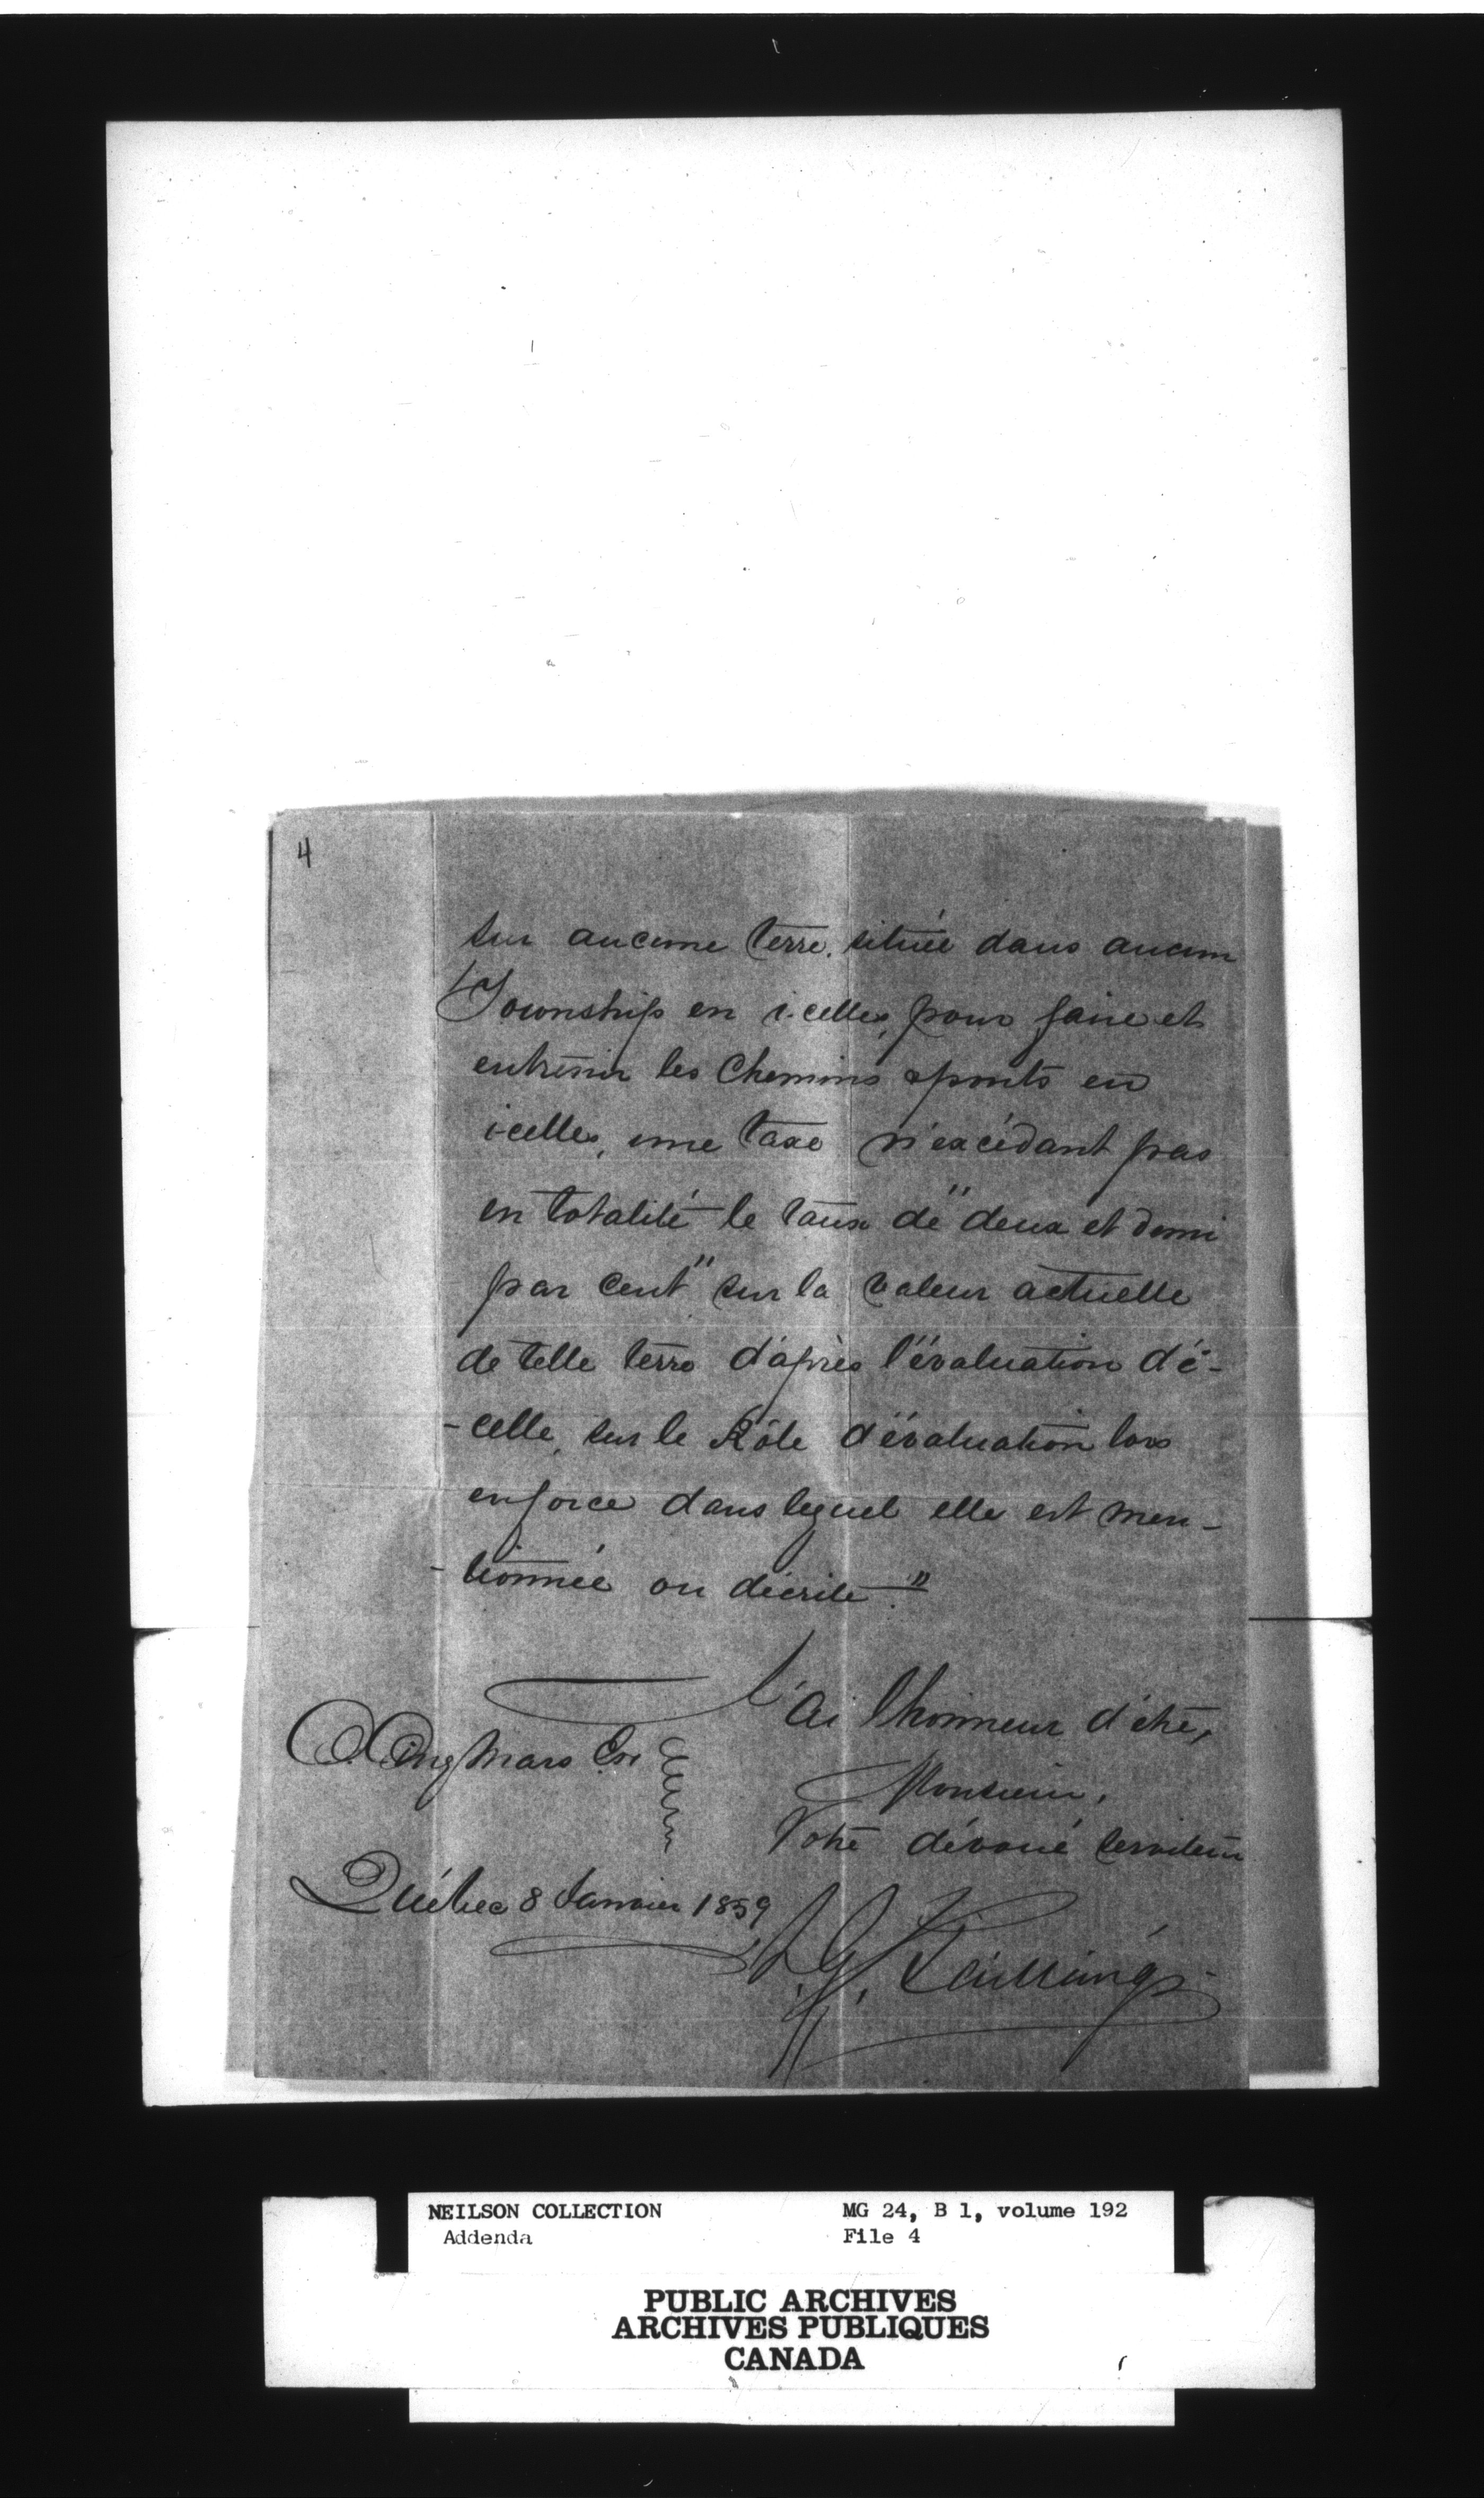 4
sur aucune terre située dans aucun
Township en icelles, pour faire et
entrenir les Chemins & ponts en
icelles, une taxe n'excédant pas
en totalité le taux de "deux et demi
par cent" sur la valeur actuelle
de telle terre d'après l'évaluation d'i-
-celle, sur le Rôle d'évaluation lors
en force dans lequel elle est men-
-tionnée ou décrite."
J'ai l'honneur d'être,
Cinqmars Ecr
Monsieur,
Votre dévoué serviteur
Québec 8 Janvier 1859
NEILSON COLLECTION MG 24, B 1, volume 192
Addenda File 4
PUBLIC ARCHIVES
ARCHIVES PUBLIQUES
CANADA